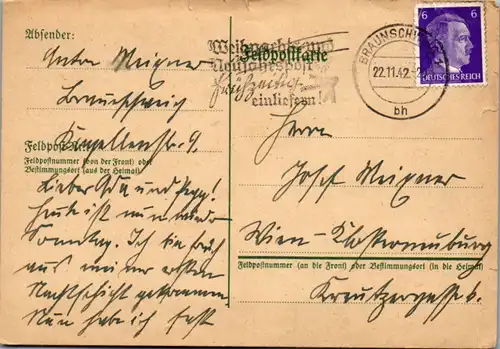 Absender:
Anton Meixner
Braunschweig
Feldpost
Kapellenstr. 9
Feldpostnummer (von der Front) oder
Bestimmungsort (aus der Heimat)
Lieber Papa und Pepp!
Heute ist nun wieder
Sonntag. Ich bin früh
aus meiner ersten
Nachtschicht gekommen.
Nun habe ich fast
Feldpostkarte
Weihnachts- und
Neujahrspost
frühzeitig
einliefern!
BRAUNSCHW
22.11.42
bh
6 6
DEUTSCHES REICH
Herrn
Josef Meixner
Wien-Klosterneuburg
Feldpostnummer (an die Front) oder Bestimmungsort (in die Heimat)
Kreutzergasse 6.